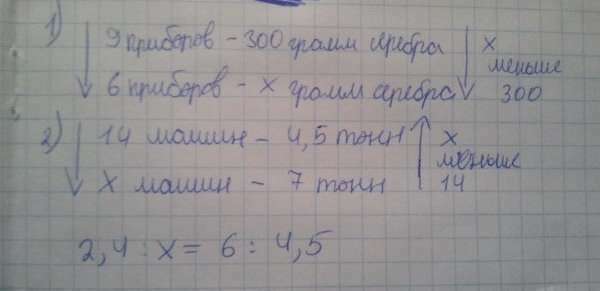 1) 9 приборов - 300 грамм серебра
6 приборов - х грамм серебра
х
меньше
300
2) 14 машин - 4,5 тонн
х машин - 7 тонн
х
меньше
14
2,4 : х = 6 : 4,5